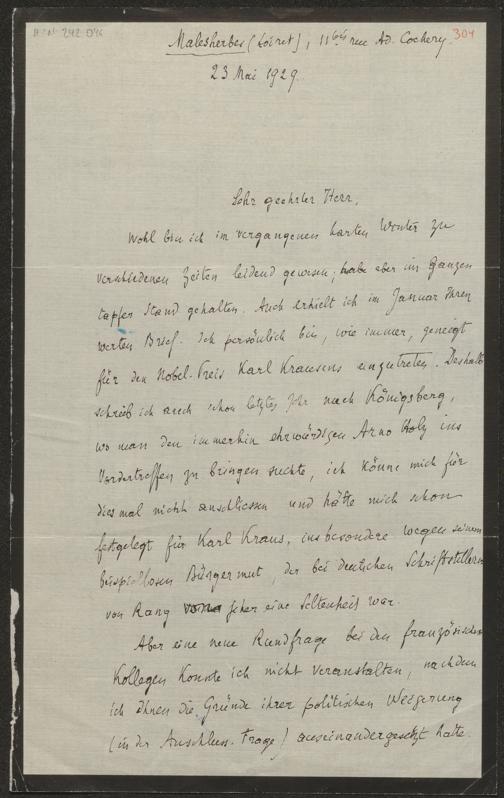 H.I.N. 242 046
304
Malesherbes (Loiret), 11bis rue Ad. Cochery.
23 Mai 1929.
Sehr geehrter Herr,
Wohl bin ich im vergangenen harten Winter zu
verschiedenen Zeiten leidend gewesen; habe aber im Ganzen
tapfer Stand gehalten. Auch erhielt ich im Januar Ihren
werten Brief. Ich persönlich bin, wie immer, geneigt
für den Nobel-Preis Karl Krausens einzutreten. Deshalb
schrieb ich auch schon letztes Jahr nach Königsberg,
wo man den immerhin ehrwürdigen Arno Holz ins
Vordertreffen zu bringen suchte, ich könne mich für
diesmal nicht anschliessen und hätte mich schon
festgelegt für Karl Kraus, insbesondere wegen seinem
beispiellosen Bürgermut, der bei deutschen Schriftstellern
von Rang jeher eine Seltenheit war.
Aber eine neue Rundfrage bei den französischen
Kollegen konnte ich nicht veranstalten, nachdem
ich Ihnen die Gründe ihrer politischen Weigerung
(in der Anschluss-Frage) auseinandergesetzt hatte.